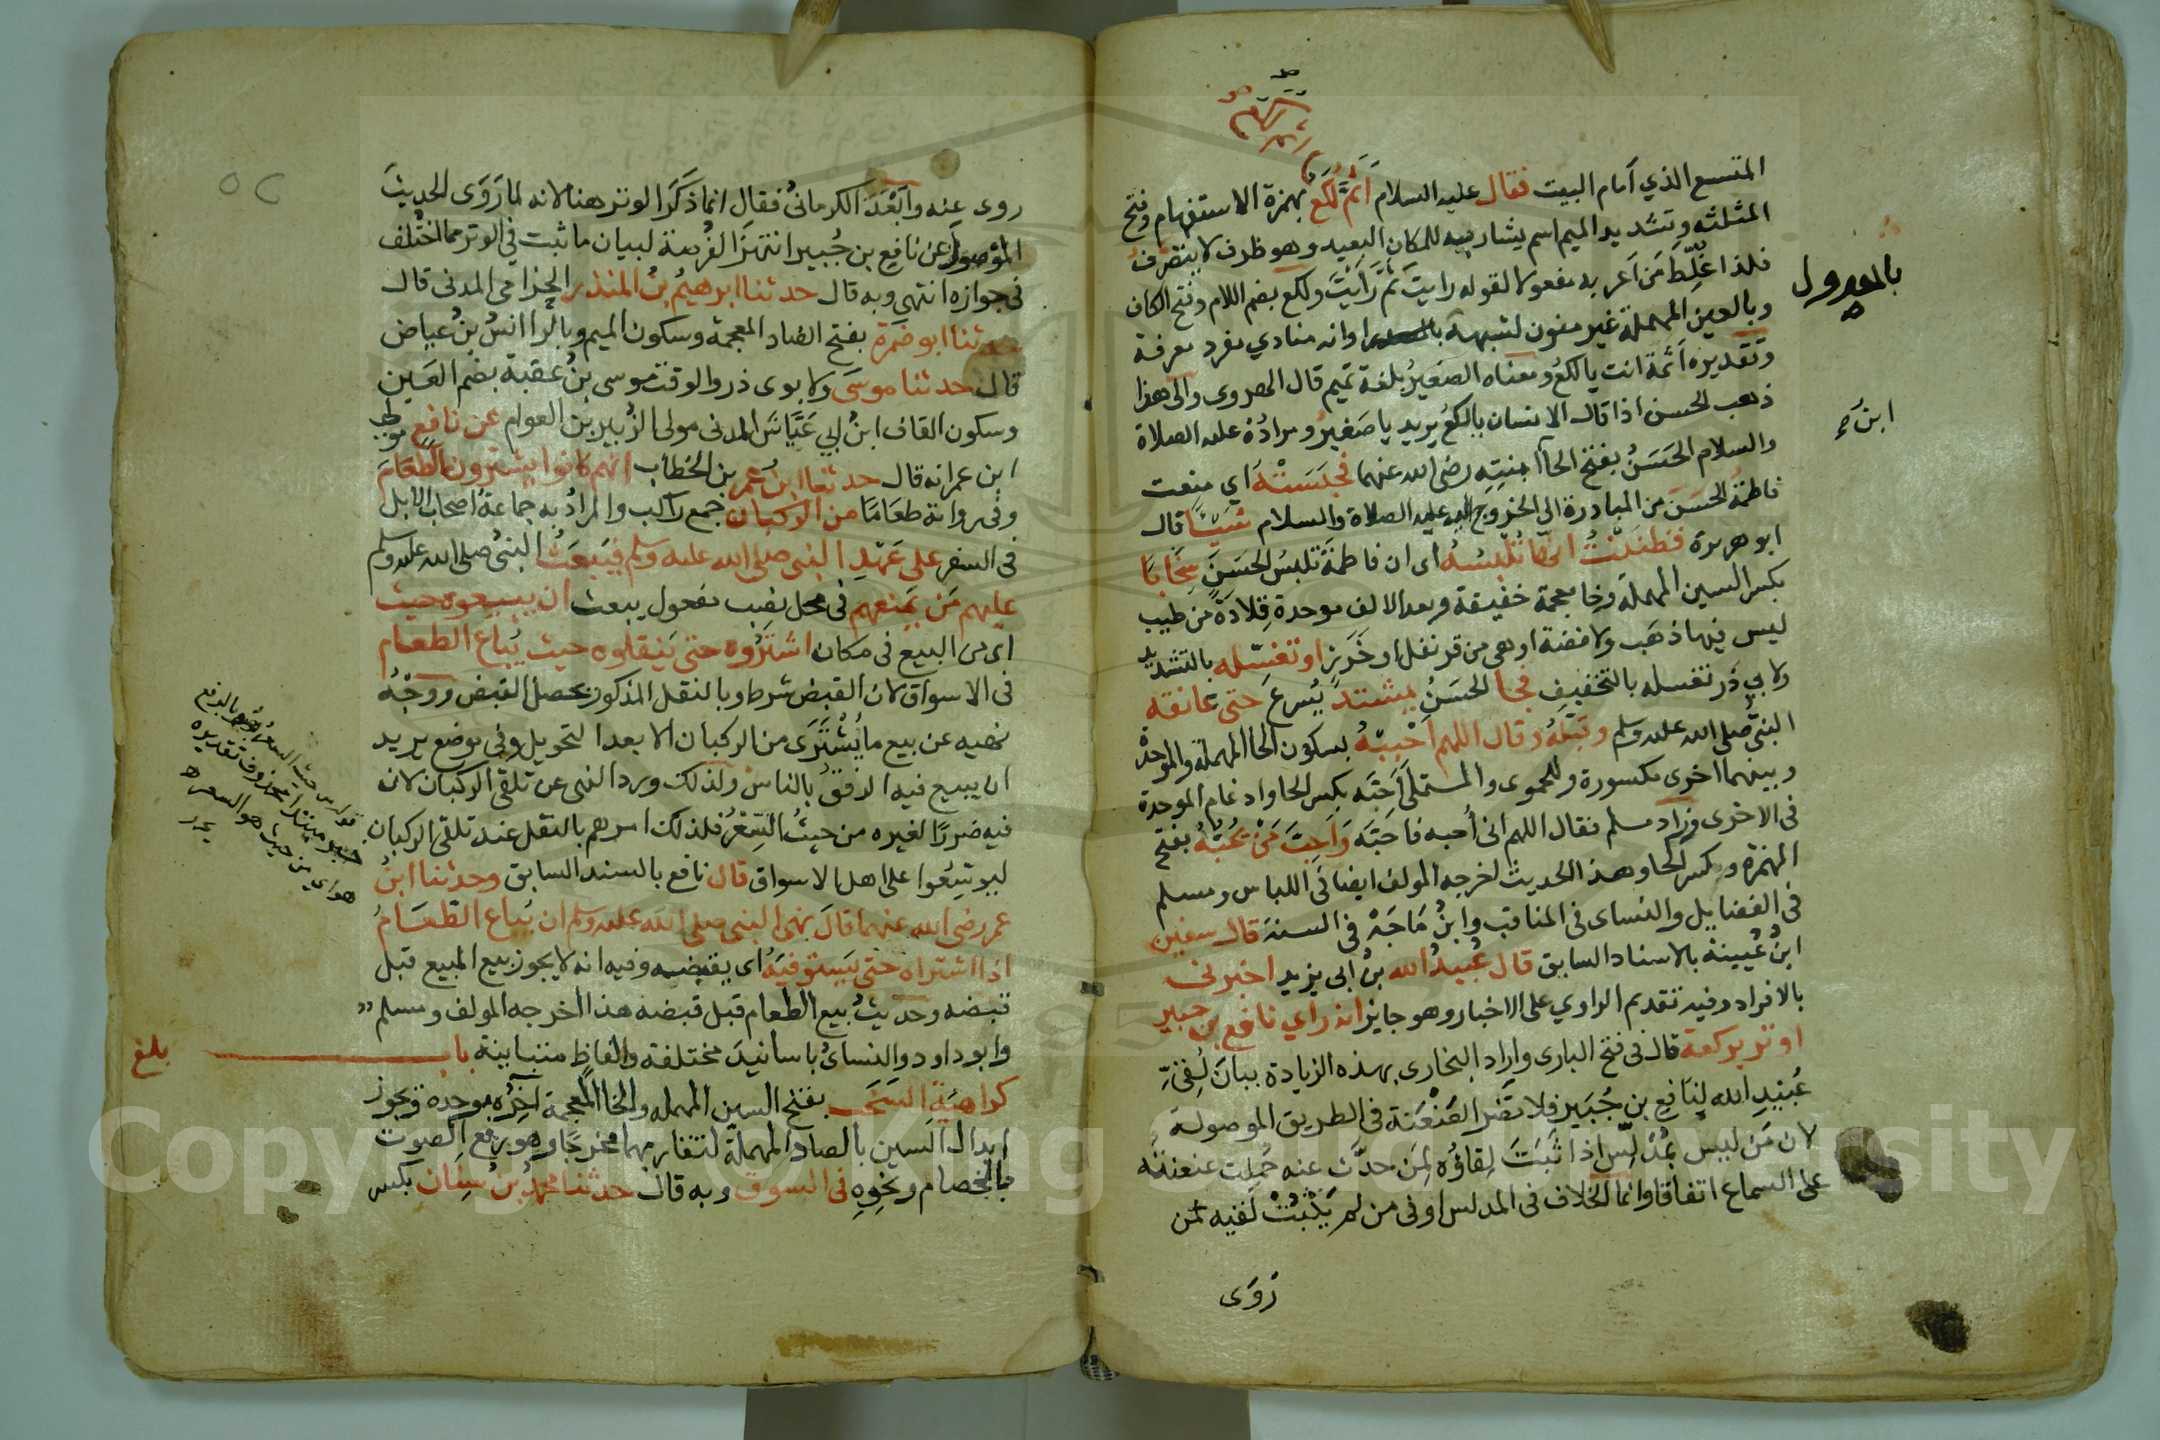 المتسع الذي أمام البيت فقال عليه السلام أثم لكع بهمزة الاستفهام وفتح
المثلثة وتشديد الميم اسم يشار به للمكان البعيد وهو ظرف لا يتصرف
فلذا غلط من أعربه مفعولا لقوله رايت ثم رأيت ولكع بضم اللام وفتح الكاف
وبالعين المهملة غير منون لشبهه او انه منادي مفرد معرفة
وتقديره أثمة انت يا لكع ومعناه الصغير بلغة تميم قال الهروي والى هذا
ذهب الحسن اذا قال الانسان يا لكع يريد يا صغير ومراده عليه الصلاة
والسلام الحسن بفتح الحا ابنته رضي الله عنهما فحبسته اي منعت
فاطمة الحسن من المبادرة الى الخروج اليه عليه الصلاة والسلام شيئا قال
ابو هريرة فظننت انها تلبسه اى ان فاطمة تلبس الحسن سخابا
بكسر السين المهملة وخا معجمة خفيفة وبعد الالف موحدة قلادة من طيب
ليس فيها ذهب ولا فضة او هي من قرنفل او خرز او تغسله بالتشديد
ولابي ذر تغسله بالتخفيف فجا الحسن يشتد يسرع حتى عانقه
النبي صلى الله عليه وسلم وقبله وقال اللهم أحببه بسكون الحا المهملة والموحدة
وبينهما اخرى مكسورة وللحموى والمستملى أحبه بكسر الحا وادغام الموحدة
فى الاخرى وزاد مسلم فقال اللهم انى أحبه فأحبه وأحب من يحبه بفتح
الهمزة وكسر الحا وهذا الحديث اخرجه المولف ايضا فى اللباس ومسلم
فى الفضايل والنساى فى المناقب وابن ماجه فى السنة قال سفين
ابن عيينة بالاسناد السابق قال عبيد الله بن ابى يزيد اخبرنى
بالافراد وفيه تقديم الراوي على الاخبار وهو جايز انه راي نافع بن جبير
اوتر بركعة قال فى فتح البارى واراد البخارى بهذه الزيادة بيان لقى
عبيد الله لنافع بن جبير فلا تضر العنعنة فى الطريق الموصولة
لان من ليس بمدلس اذا ثبت لقاؤه لمن حدث عنه حملت عنعنته
على السماع اتفاقا وانما الخلاف فى المدلس او فى من لم يثبت لقيه لمن
روى
بالمعدول
روى عنه وأبعد الكرماني فقال انما ذكر الوتر هنا لانه لما روى الحديث
الموصول عن نافع بن جبير انتهز الفرصة لبيان ما ثبت في الوتر مما اختلف
فى جوازه انتهى وبه قال حدثنا ابرهيم بن المنذر الحزامى المدنى قال
حدثنا ابو ضمرة بفتح الضاد المعجمة وسكون الميم وبالرا انس بن عياض
قال حدثنا موسى ولابوى ذر والوقت موسى بن عقبة بضم العين
وسكون القاف ابن ابي عياش المدنى مولى الزبير بن العوام عن نافع مولى
ابن عمر انه قال حدثنا ابن عمر بن الخطاب انهم كانوا يشترون الطعام
وفى رواية طعاما من الركبان جمع راكب والمراد به جماعة اصحاب الابل
فى السفر على عهد النبى صلى الله عليه وسلم فيبعث النبى صلى الله عليه وسلم
عليهم من يمنعهم فى محل نصب مفعول يبعث ان يبيعوه حيث
اى من البيع فى مكان اشتروه حتى ينقلوه حيث يباع الطعام
فى الاسواق لان القبض شرط وبالنقل المذكور يحصل القبض ووجه
نهيه عن بيع ما يشترى من الركبان الا بعد التحويل وفى موضع يريد
ان يبيع فيه الرفق بالناس ولذلك ورد النهى عن تلقى الركبان لان
فيه ضررا لغيره من حيث السعر فلذلك امرهم بالنقل عند تلقى الركبان
ليوسعوا على اهل الاسواق قال نافع بالسند السابق وحدثنا ابن
عمر رضى الله عنهما قال نهى النبى صلى الله عليه وسلم ان يباع الطعام
اذا اشتراه حتى يستوفيه اى يقبضه وفيه انه لا يجوز بيع المبيع قبل
قبضه وحديث بيع الطعام قبل قبضه هذا اخرجه المولف ومسلم
وابو داود والنسائ باسانيد مختلفة والفاظ متباينة باب
كراهية السخب بفتح السين المهملة والخا المعجمة اخره موحدة ويجوز
ابدال السين بالصاد المهملة لتقاربهما مخرجا وهو رفع الصوت
بالخصام ونحوه فى السوق وبه قال حدثنا محمد بن سنان بكسر
قوله من حيث السعر بالرفع
مبتدا محذوف تقديره
هو اي من حيث هو السعر
بلغ
Copyright © King Saud University